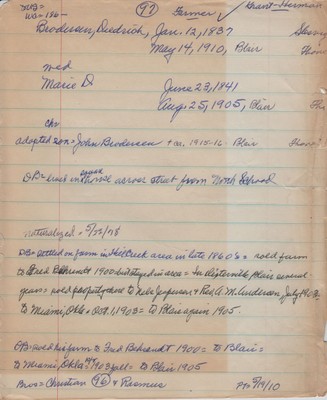 DB=
(97) Farmer ✓ Grant-Herman
Brodersen, Diedrich, Jan. 12, 1837
May 14, 1910, Blair
wed
Marie D June 23, 1841
Aug. 25, 1905, Blair
Ch=
adopted son = John Brodersen + ca. 1915-16 = Blair
DB = lived in house across street from North School
Naturalized =
DB = settled on farm in area in late 1860's = sold farm
to Fred Behrendt 1900 but stayed in area = Blair several
years = sold property to Nels Jespersen & Rev A. M. Andersen, July 1903 =
to Miami, Okla = Oct. 1, 1903 = to Blair again 1905.
DB = sold his farm to Fred Behrendt 1900 = to Blair =
to Miami, Okla 1903 = to Blair 1905
Bros = Christian (96) & Rasmus 5/19/10